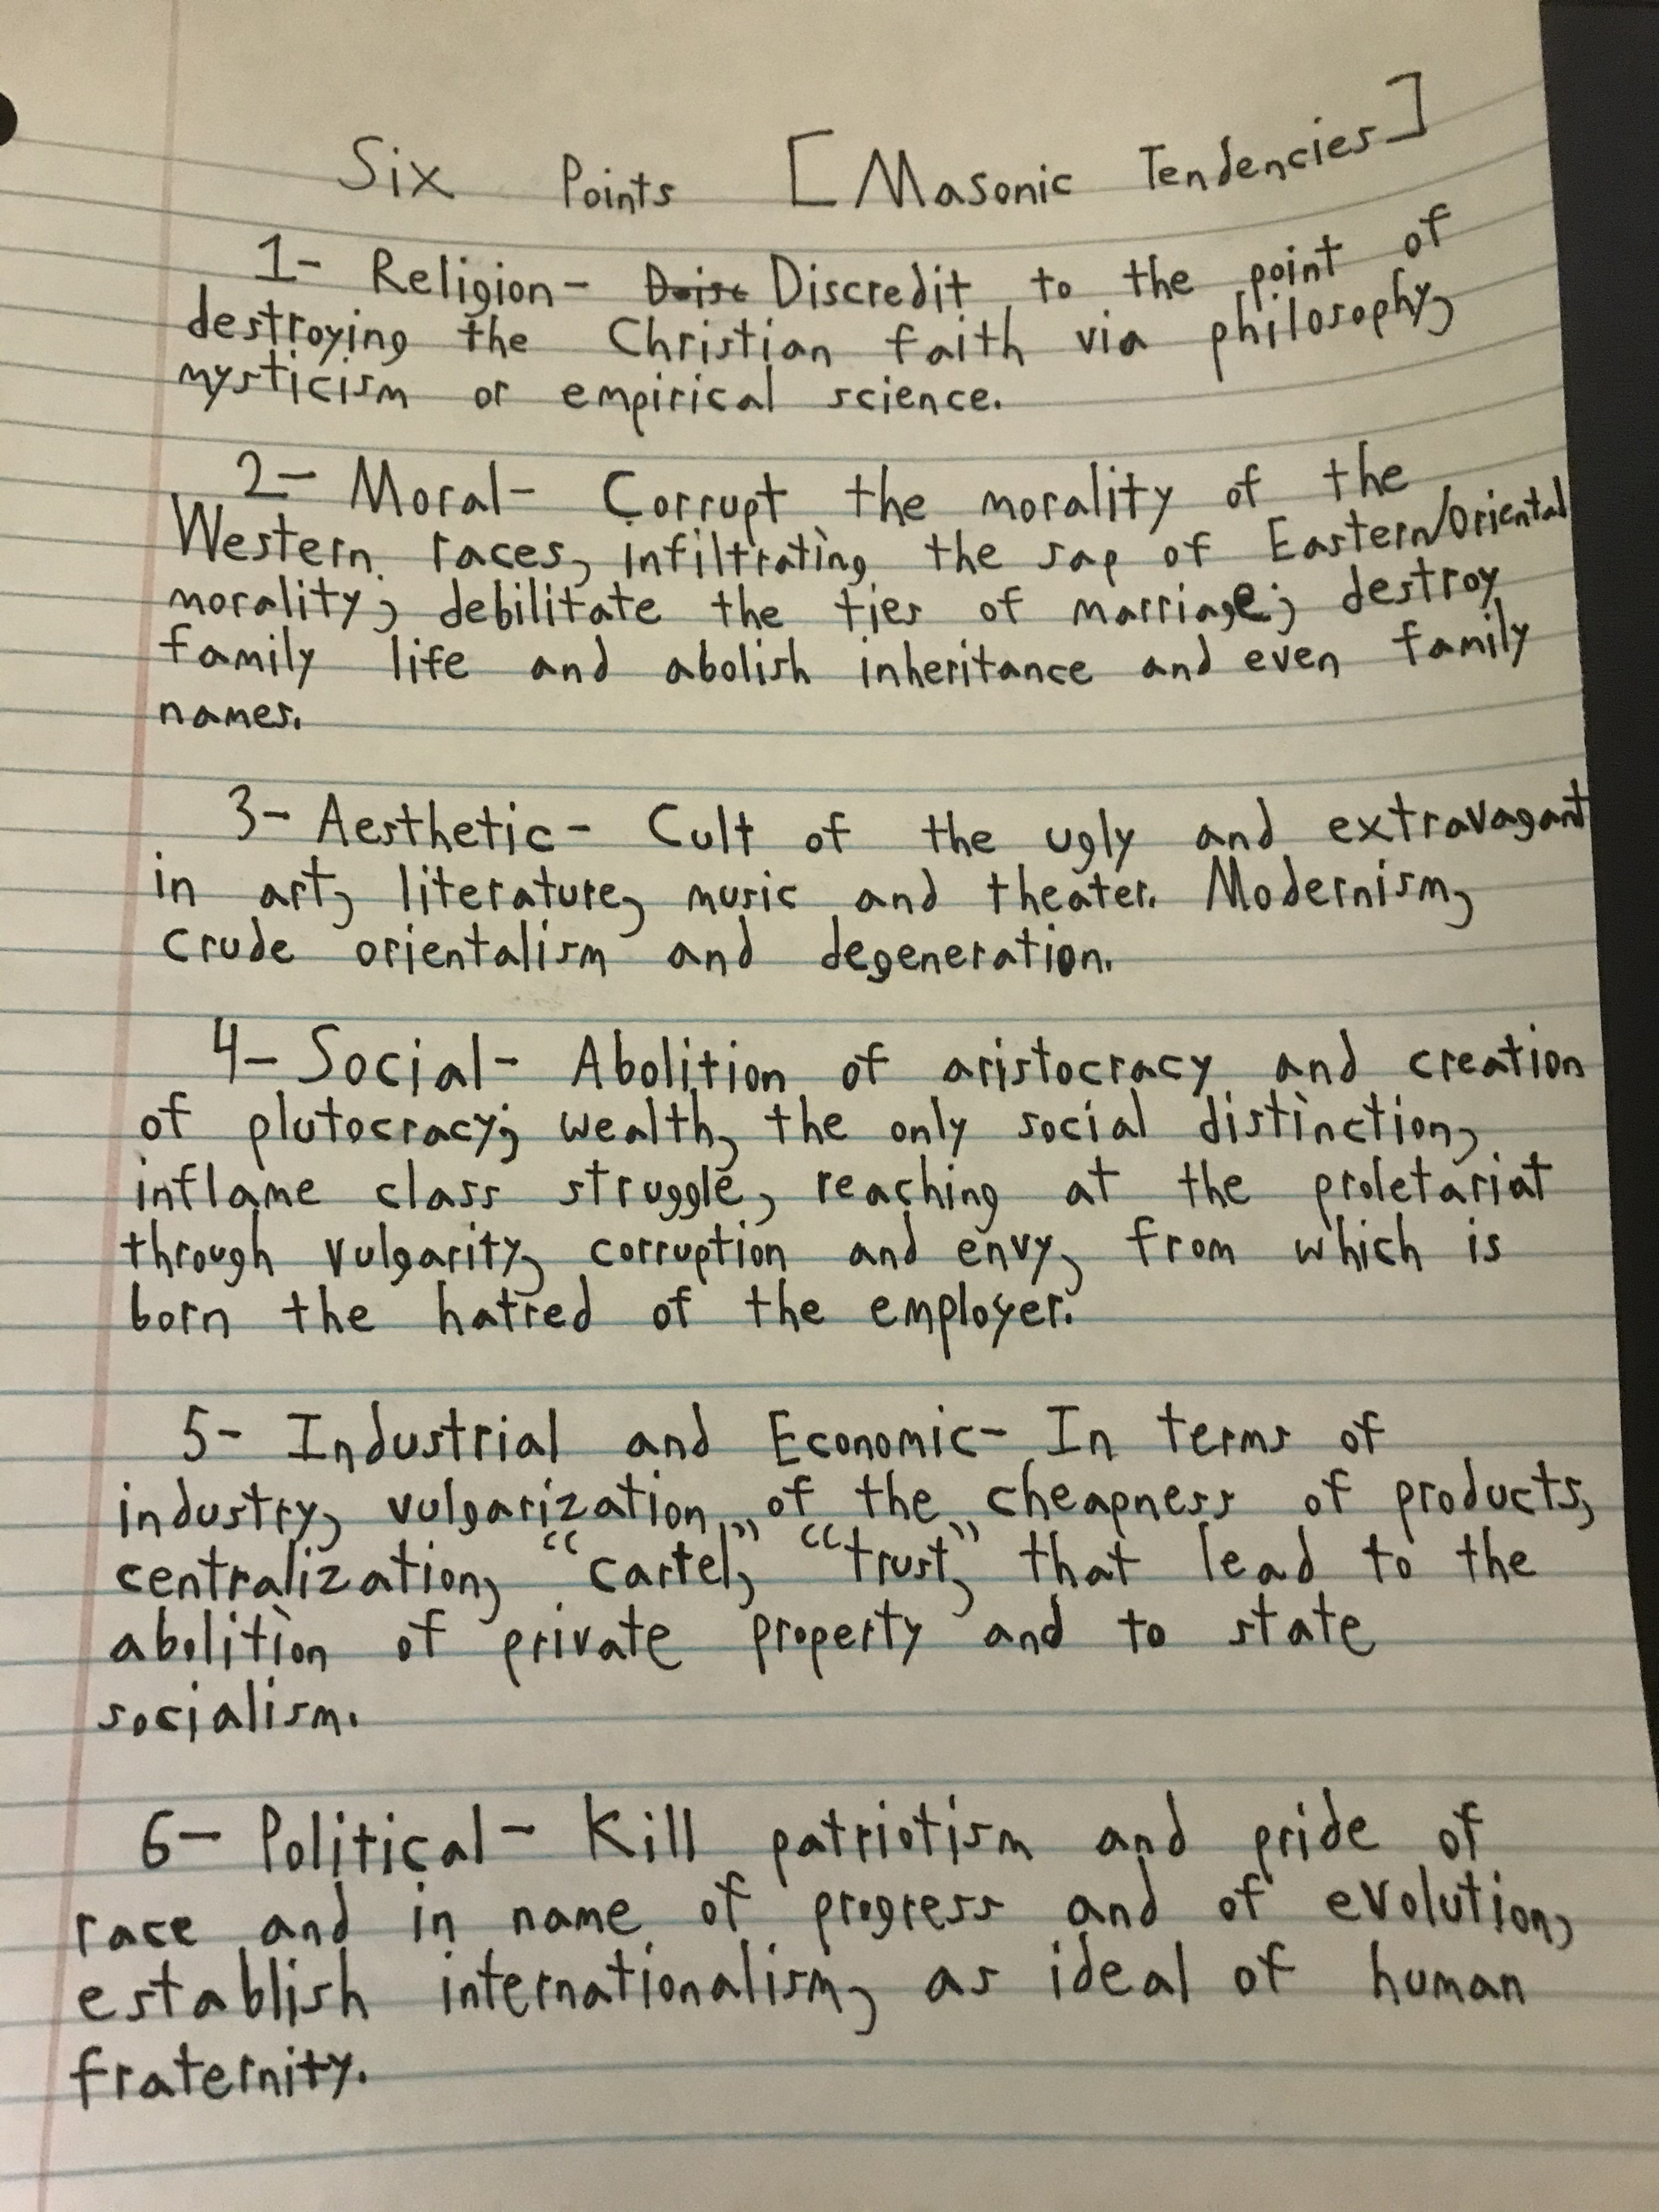 Six Points [Masonic Tendencies]
1- Religion- Discredit to the point of
destroying the Christian faith via philosophy,
mysticism or empirical science.
2- Moral- Corrupt the morality of the
Western races, infiltrating the sap of Eastern/Oriental
morality; debilitate the ties of marriage; destroy
family life and abolish inheritance and even family
names.
3- Aesthetic- Cult of the ugly and extravagant
in art, literature, music and theater. Modernism,
crude orientalism and degeneration.
4- Social- Abolition of aristocracy and creation
of plutocracy; wealth, the only social distinction,
inflame class struggle, reaching at the proletariat
through vulgarity, corruption and envy, from which is
born the hatred of the employer.
5- Industrial and Economic- In terms of
industry, vulgarization of the cheapness of products,
centralization, "cartel," "trust," that lead to the
abolition of private property and to state
socialism.
6- Political- Kill patriotism and pride of
race and in name of progress and of evolution,
establish internationalism, as ideal of human
fraternity.